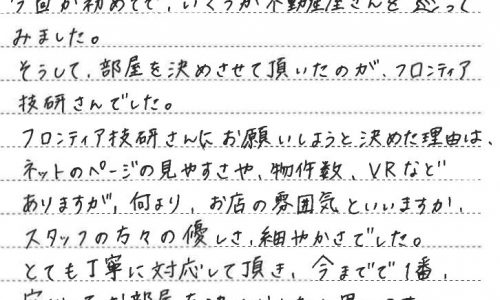 今回が初めてで、いくつか不動産屋さんを巡って
みました。
そうして、部屋を決めさせて頂いたのが、フロンティア
技研さんでした。
フロンティア技研さんにお願いしようと決めた理由は、
ネットのページの見やすさや、物件数、VRなど
ありますが、何より、お店の雰囲気といいますか、
スタッフの方々の優しさ、細やかさでした。
とても丁寧に対応して頂き、今までで1番、